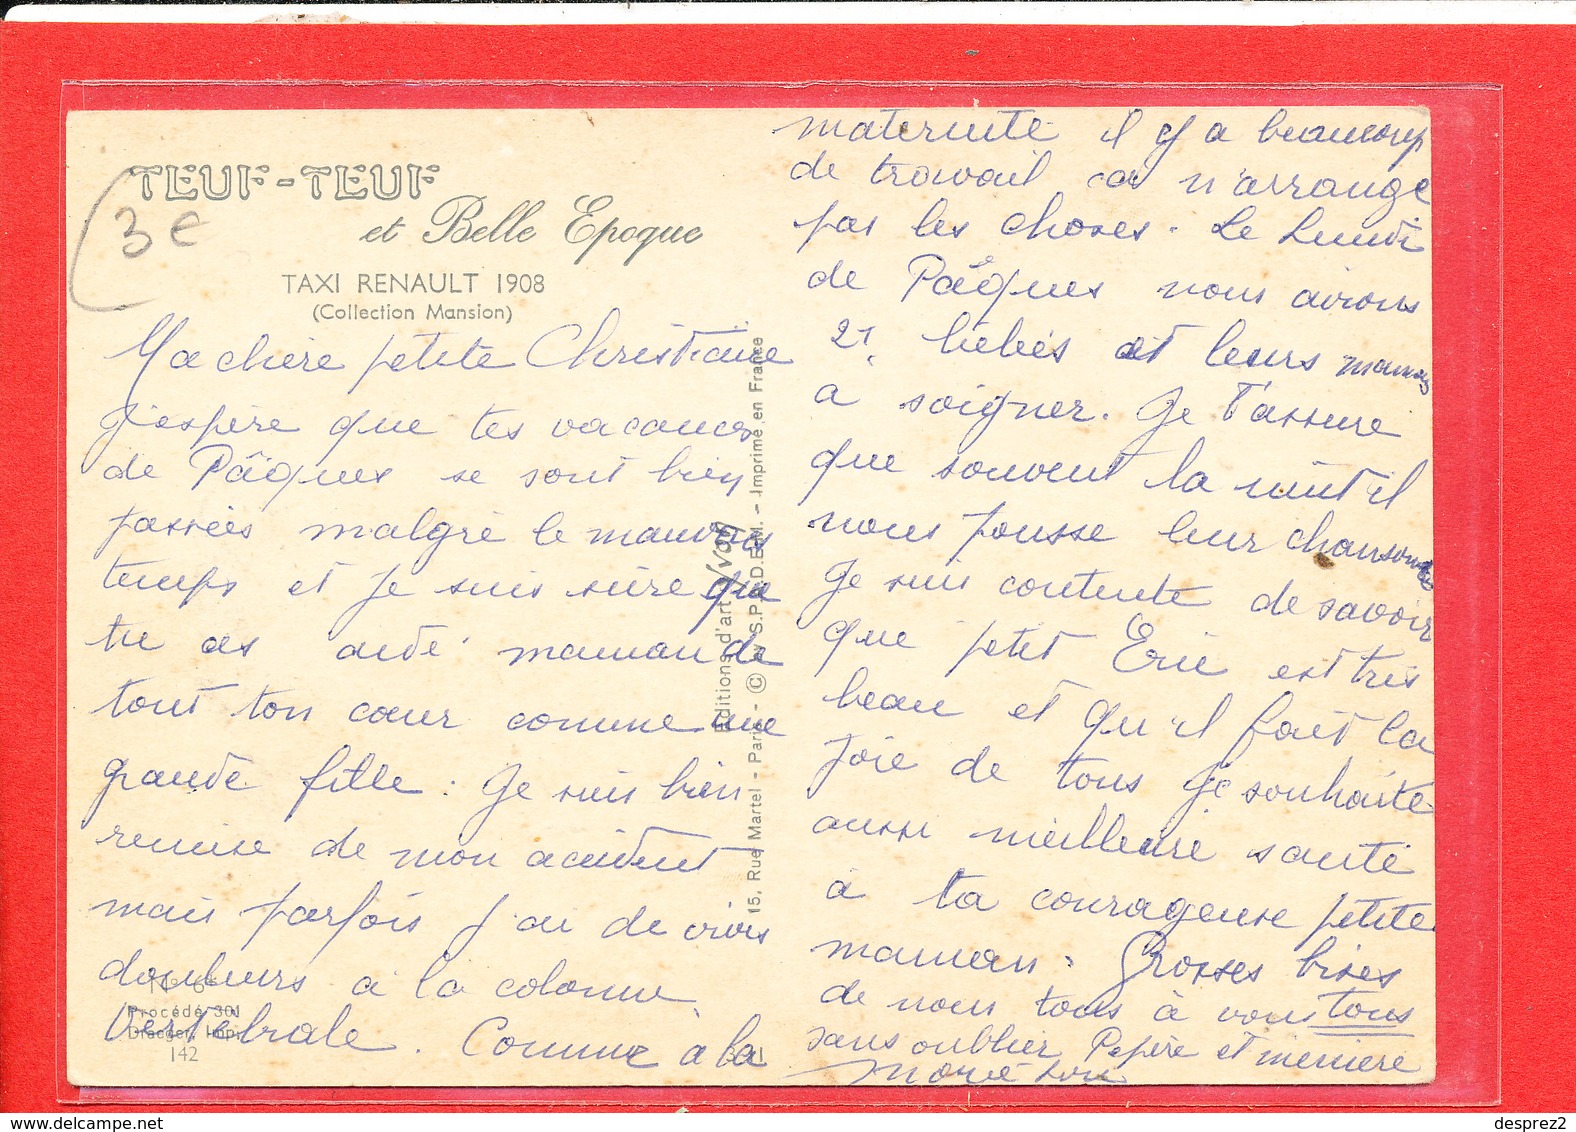 TEUF-TEUF
et Belle Epoque
3€
TAXI RENAULT 1908
(Collection Mansion)
Ma chère petite Christiane
J'espère que tes vacances
de Pâques se sont bien
passées malgré le mauvais
temps et je suis sûre que
tu as aidé maman de
tout ton cœur comme une
grande fille. Je suis bien
remise de mon accident
mais parfois j'ai de vives
douleurs à la colonne
vertébrale. Comme à la
Procédé 301
Draeger, Imp.
142
Editions d'art Yvon
15, Rue Martel - Paris - © by S.P.A.D.E.M. - Imprimé en France
maternité il y a beaucoup
de travail ça n'arrange
pas les choses. Le Lundi
de Pâques nous avions
21 bébés et leurs mamans
a soigner. Je t'assure
que souvent la nuit il
nous pousse leur chansonnettes
Je suis contente de savoir
que petit Eric est très
beau et qu'il fait la
joie de tous Je souhaite
aussi meilleure santé
à ta courageuse petite
maman. Grosses bises
de nous tous à vous tous
sans oublier Pépère et mémère
desprez2